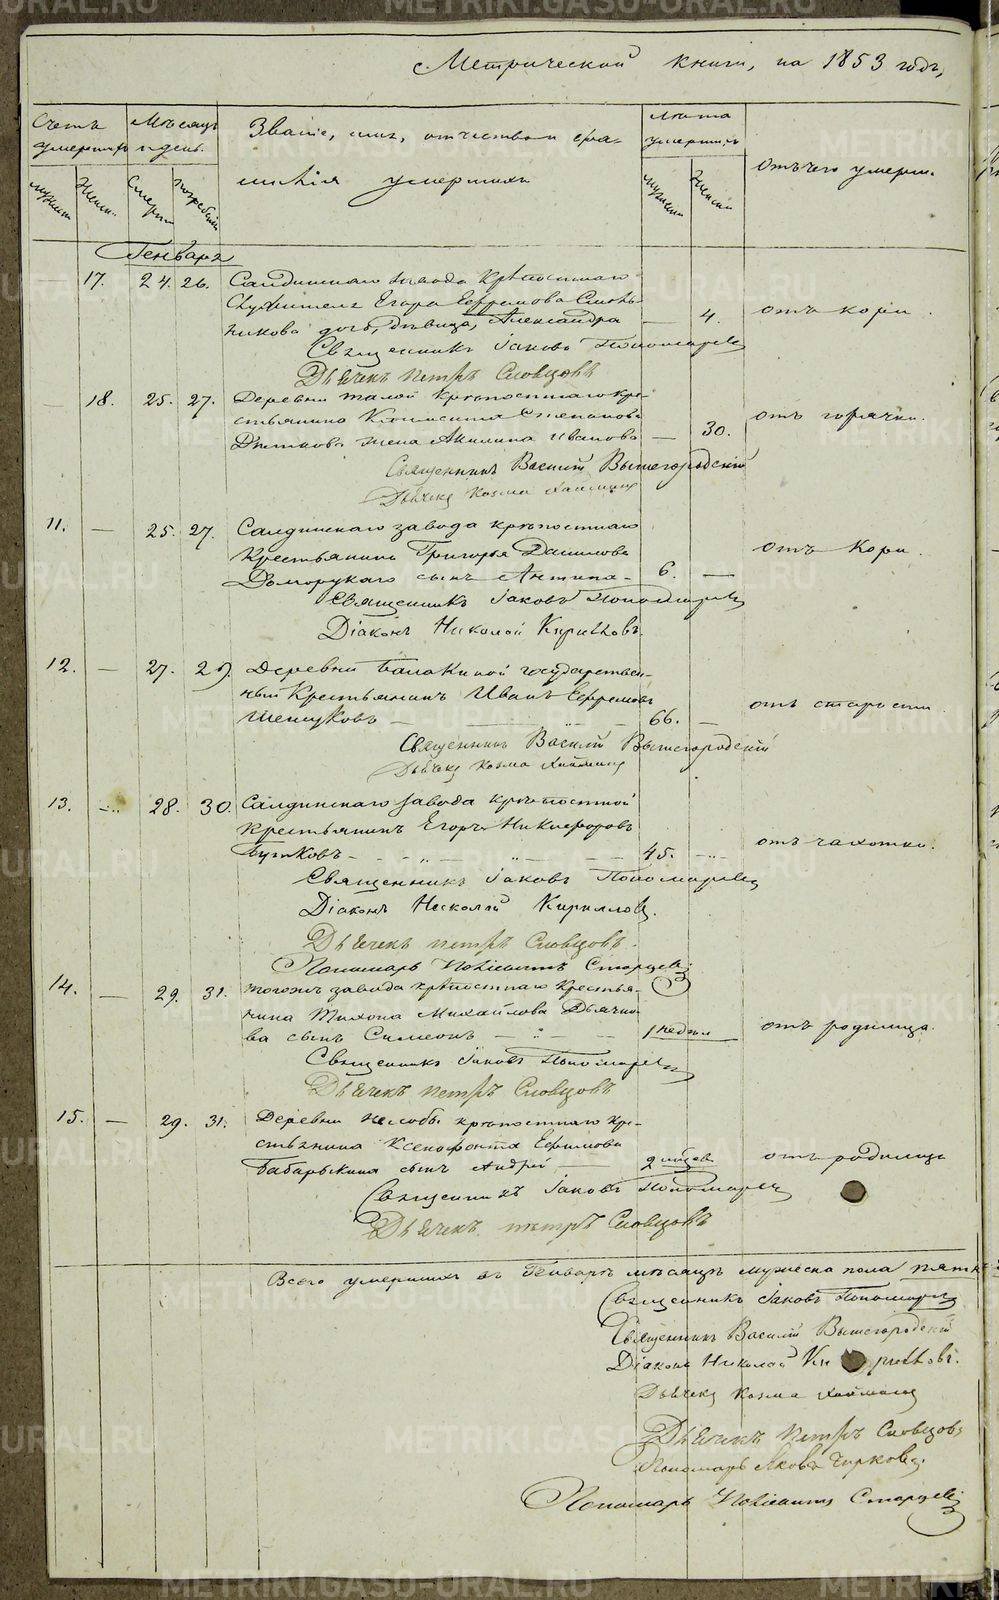 Метрической книги, на 1853 годъ,
Счетъ умершихъ
Мѣсяцъ и день.
Званіе, имя, отчество и фамилія умершихъ
Лѣта умершихъ
отъ чего умерли.
Мужеск.
Женск.
Смерти
погребенія
Мужеск.
Женск.
Генваря
17. 24. 26. Салдинскаго завода крѣпостнаго
Служителя Егора Ефремова
дочь, дѣвица, Александра — 4. отъ кори.
Священникъ Іаковъ Пономаревъ
Дьячекъ Петръ Словцовъ
18. 25. 27. Деревни крѣпостнаго кре-
стьянина Степанова
жена Акилина Иванова — 30. отъ горячки.
Священникъ Василій Вышегородскій
Дьячекъ Козма
11. — 25. 27. Салдинскаго завода крѣпостнаго
Крестьянина Григорья Данилова
Доморукаго сынъ Антипа — 6. — отъ кори.
Священникъ Іаковъ Пономаревъ
Діаконъ Николай Кирилловъ.
12. — 27. 29. Деревни Балакиной государствен-
ный Крестьянинъ Иванъ Ефремовъ
— 66. — отъ старости.
Священникъ Василій Вышегородскій
Дьячекъ Козма
13. — 28. 30. Салдинскаго завода крѣпостной
крестьянинъ Егоръ Никифоровъ
45. отъ чахотки.
Священникъ Іаковъ Пономаревъ
Діаконъ Николай Кирилловъ.
Дьячекъ Петръ Словцовъ.
Пономарь Старцевъ
14. — 29. 31. тогожъ завода крѣпостнаго Крестья-
нина Тихона Михайлова Дьячко-
ва сынъ Симеонъ — 1 недѣл отъ родимца.
Священникъ Іаковъ Пономаревъ
Дьячекъ Петръ Словцовъ
15. — 29. 31. Деревни крѣпостнаго кре-
стьянина Ксенофонта Ефимова
Бабарыкина сынъ Андрей 2 отъ родимца
Священникъ Іаковъ Пономаревъ
Дьячекъ Петръ Словцовъ
Всего умершихъ въ Генварѣ мѣсяцѣ мужеска пола
Священникъ Іаковъ Пономаревъ
Священникъ Василій Вышегородскій
Діаконъ Николай Кирилловъ.
Дьячекъ Козма
Дьячекъ Петръ Словцовъ
Пономарь Яковъ Чирковъ.
Пономарь Старцевъ
METRIKI.GASO-URAL.RU